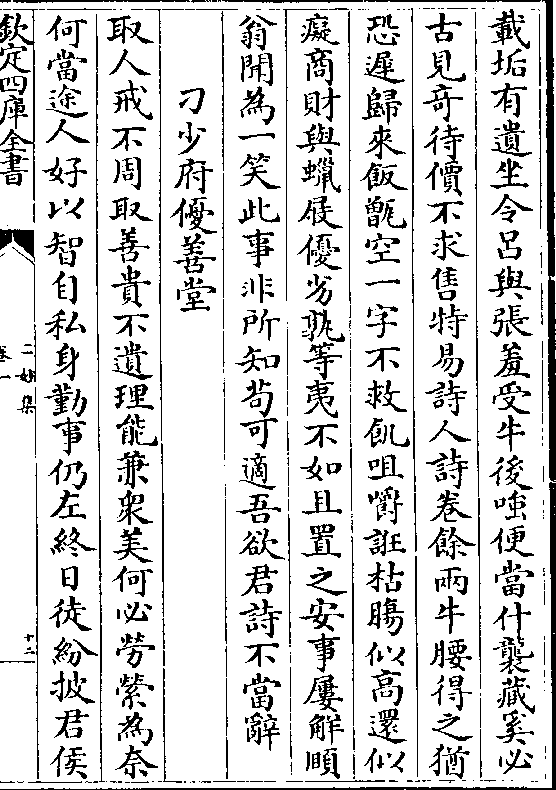 載垢有遺坐令呂與張羞受牛後嗤便當什襲藏奚必
古見奇待價不求售特易詩人詩卷餘兩牛腰得之猶
恐遲歸來飯甑空一字不救飢咀嚼誑枯腸似高還似
癡商財與蠟屐優劣孰等夷不如且置之安事屢解頤
翁聞為一笑此事非所知苟可適吾欲君詩不當辭
刁少府優善堂
取人戒不周取善貴不遺理能兼衆美何必勞縈為奈
何當途人好以智自私身勤事仍左終日徒紛披君侯
欽定四庫全書
二妙集
卷一
十二